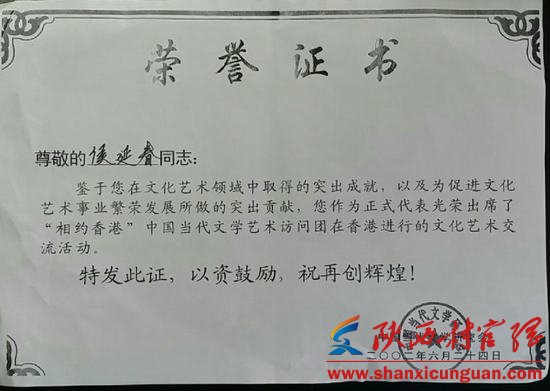 荣誉证书
尊敬的侯延春同志：
鉴于您在文化艺术领域中取得的突出成就，以及为促进文化
艺术事业繁荣发展所做的突出贡献，您作为正式代表光荣出席了
“相约香港”中国当代文学艺术访问团在香港进行的文化艺术交
流活动。
特发此证，以资鼓励，祝再创辉煌！
二〇〇二年六月二十四日
www.shanxicunguan.com